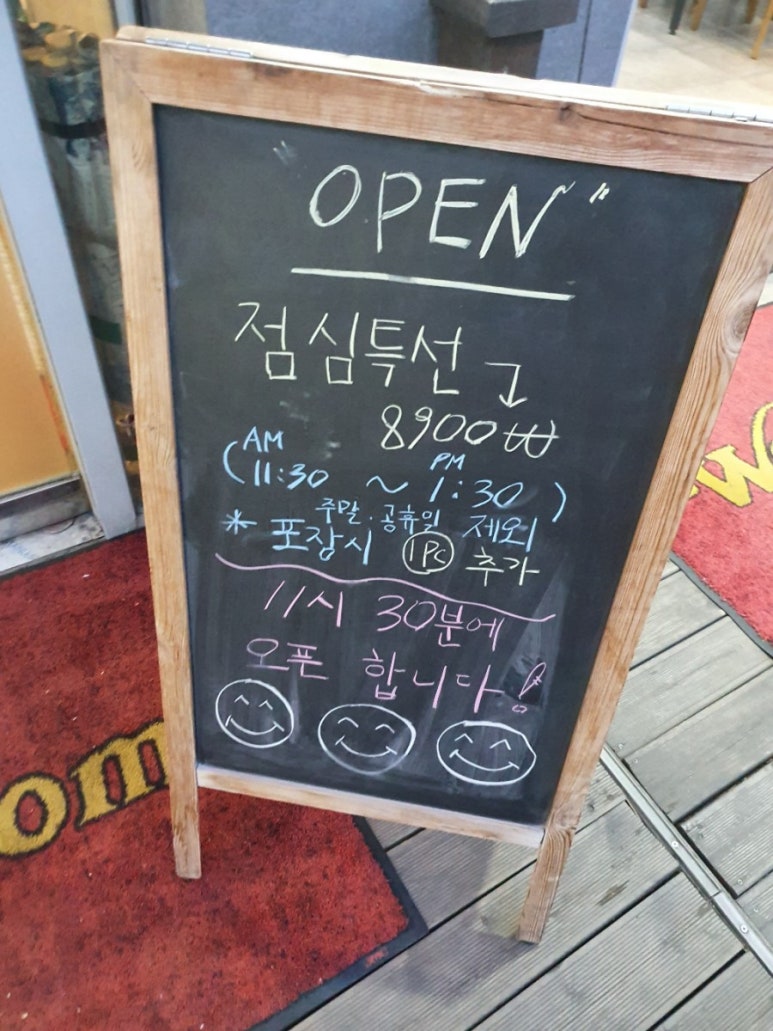 OPEN"
점심특선
8900₩
(AM 11:30 ~ PM 1:30)
주말·공휴일 제외
* 포장시 1PC 추가
11시 30분에
오픈 합니다!
om